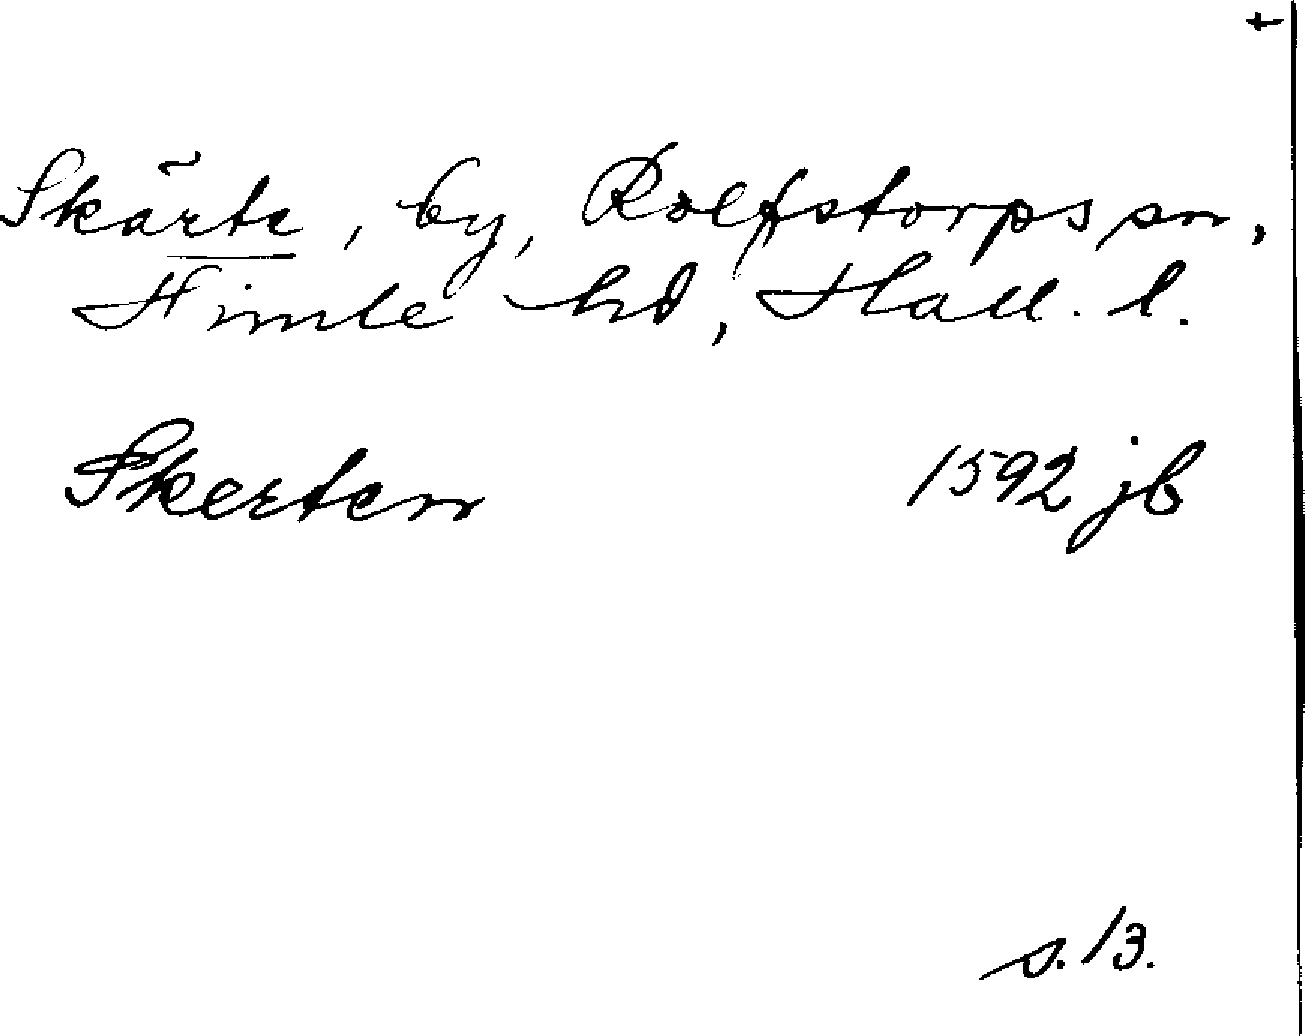 +
Skärte, by, Rolfstorps sn,
Himle hd, Hall. l.
Skerten 1592 jb
s. 13.